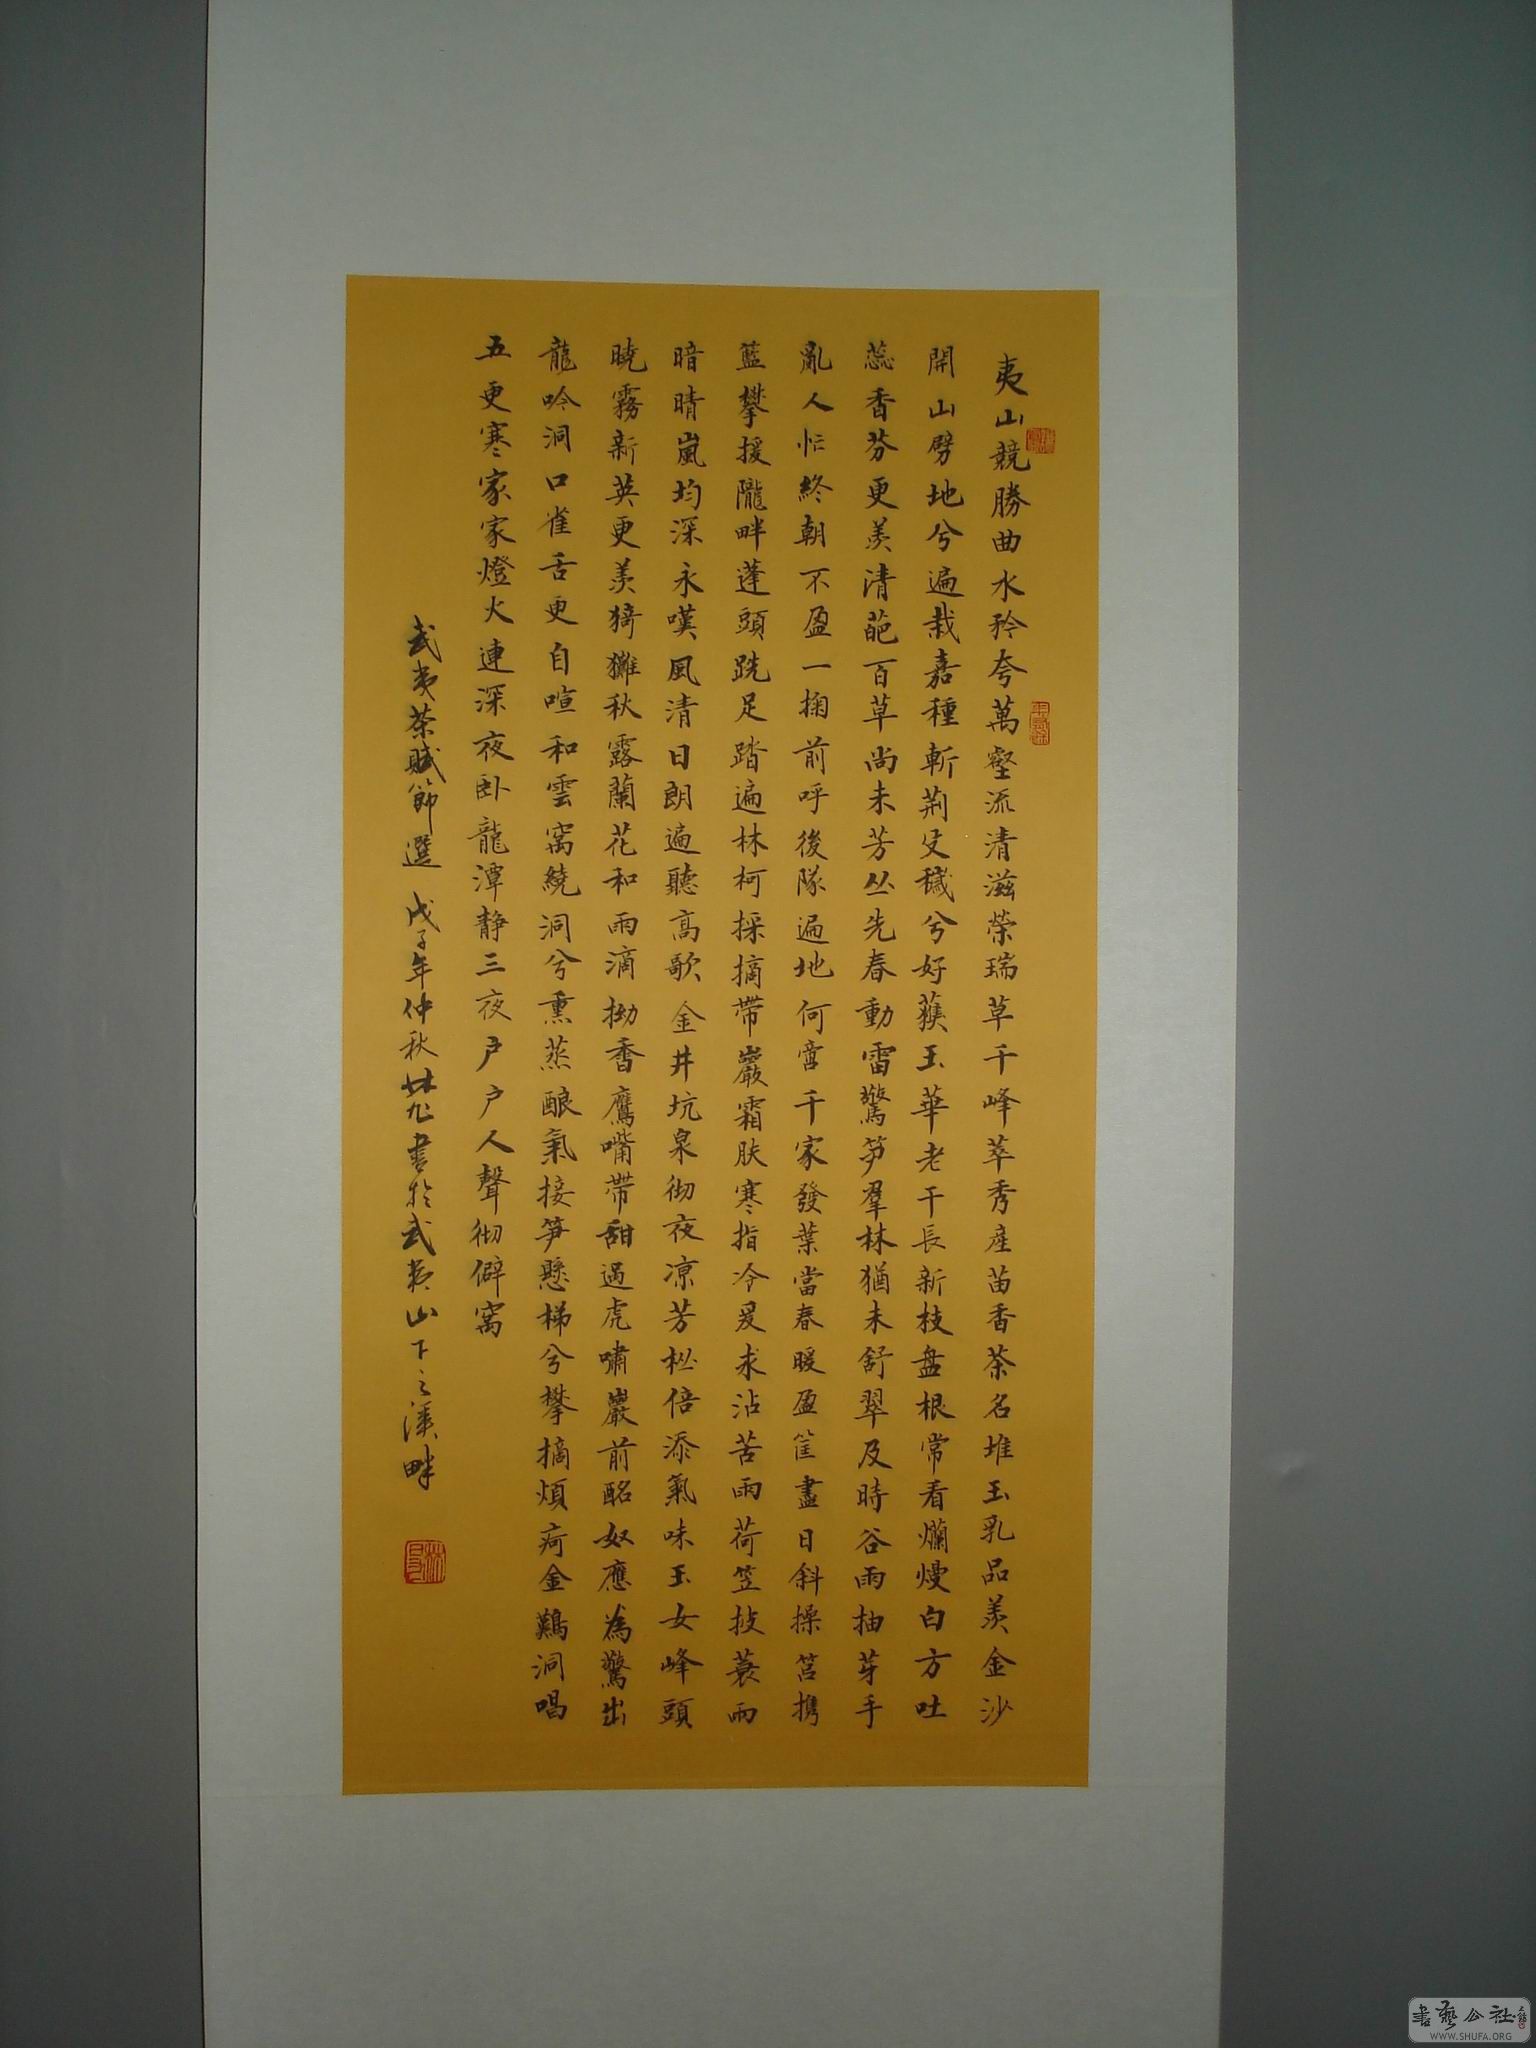 夷山競勝曲水矜夸萬壑流清滋榮瑞草千峰萃秀産苗香茶名堆玉乳品羨金沙
開山劈地兮遍栽嘉種斬荆芟穢兮好蓺玉華老干長新枝盘根常看爛熳白方吐
蕊香芬更羨清葩百草尚未芳丛先春動雷驚笋羣林猶未舒翠及時谷雨抽芽手
亂人忙終朝不盈一掬前呼後隊遍地何啻千家發葉當春暖盈筐盡日斜操筥携
籃攀援隴畔蓬頭跣足踏遍林柯採摘帶巖霜肤寒指冷爰求沾苦雨荷笠披蓑雨
暗晴嵐均深永嘆風清日朗遍聽高歌金井坑泉彻夜凉芳丛倍添氣味玉女峰頭
曉霧新英更羨猗儺秋露蘭花和雨滴拗香鷹嘴帶甜過虎嘯巖前酩奴應為驚出
龍吟洞口雀舌更自喧和雲窩繞洞兮熏蒸酿氣接笋懸梯兮攀摘煩疴金鷄洞唱
五更寒家家燈火連深夜卧龍潭静三夜户户人聲彻僻窩
武夷茶賦節選 戊子年仲秋林 書於武夷山下之溪畔
書藝公社
WWW.SHUFA.ORG